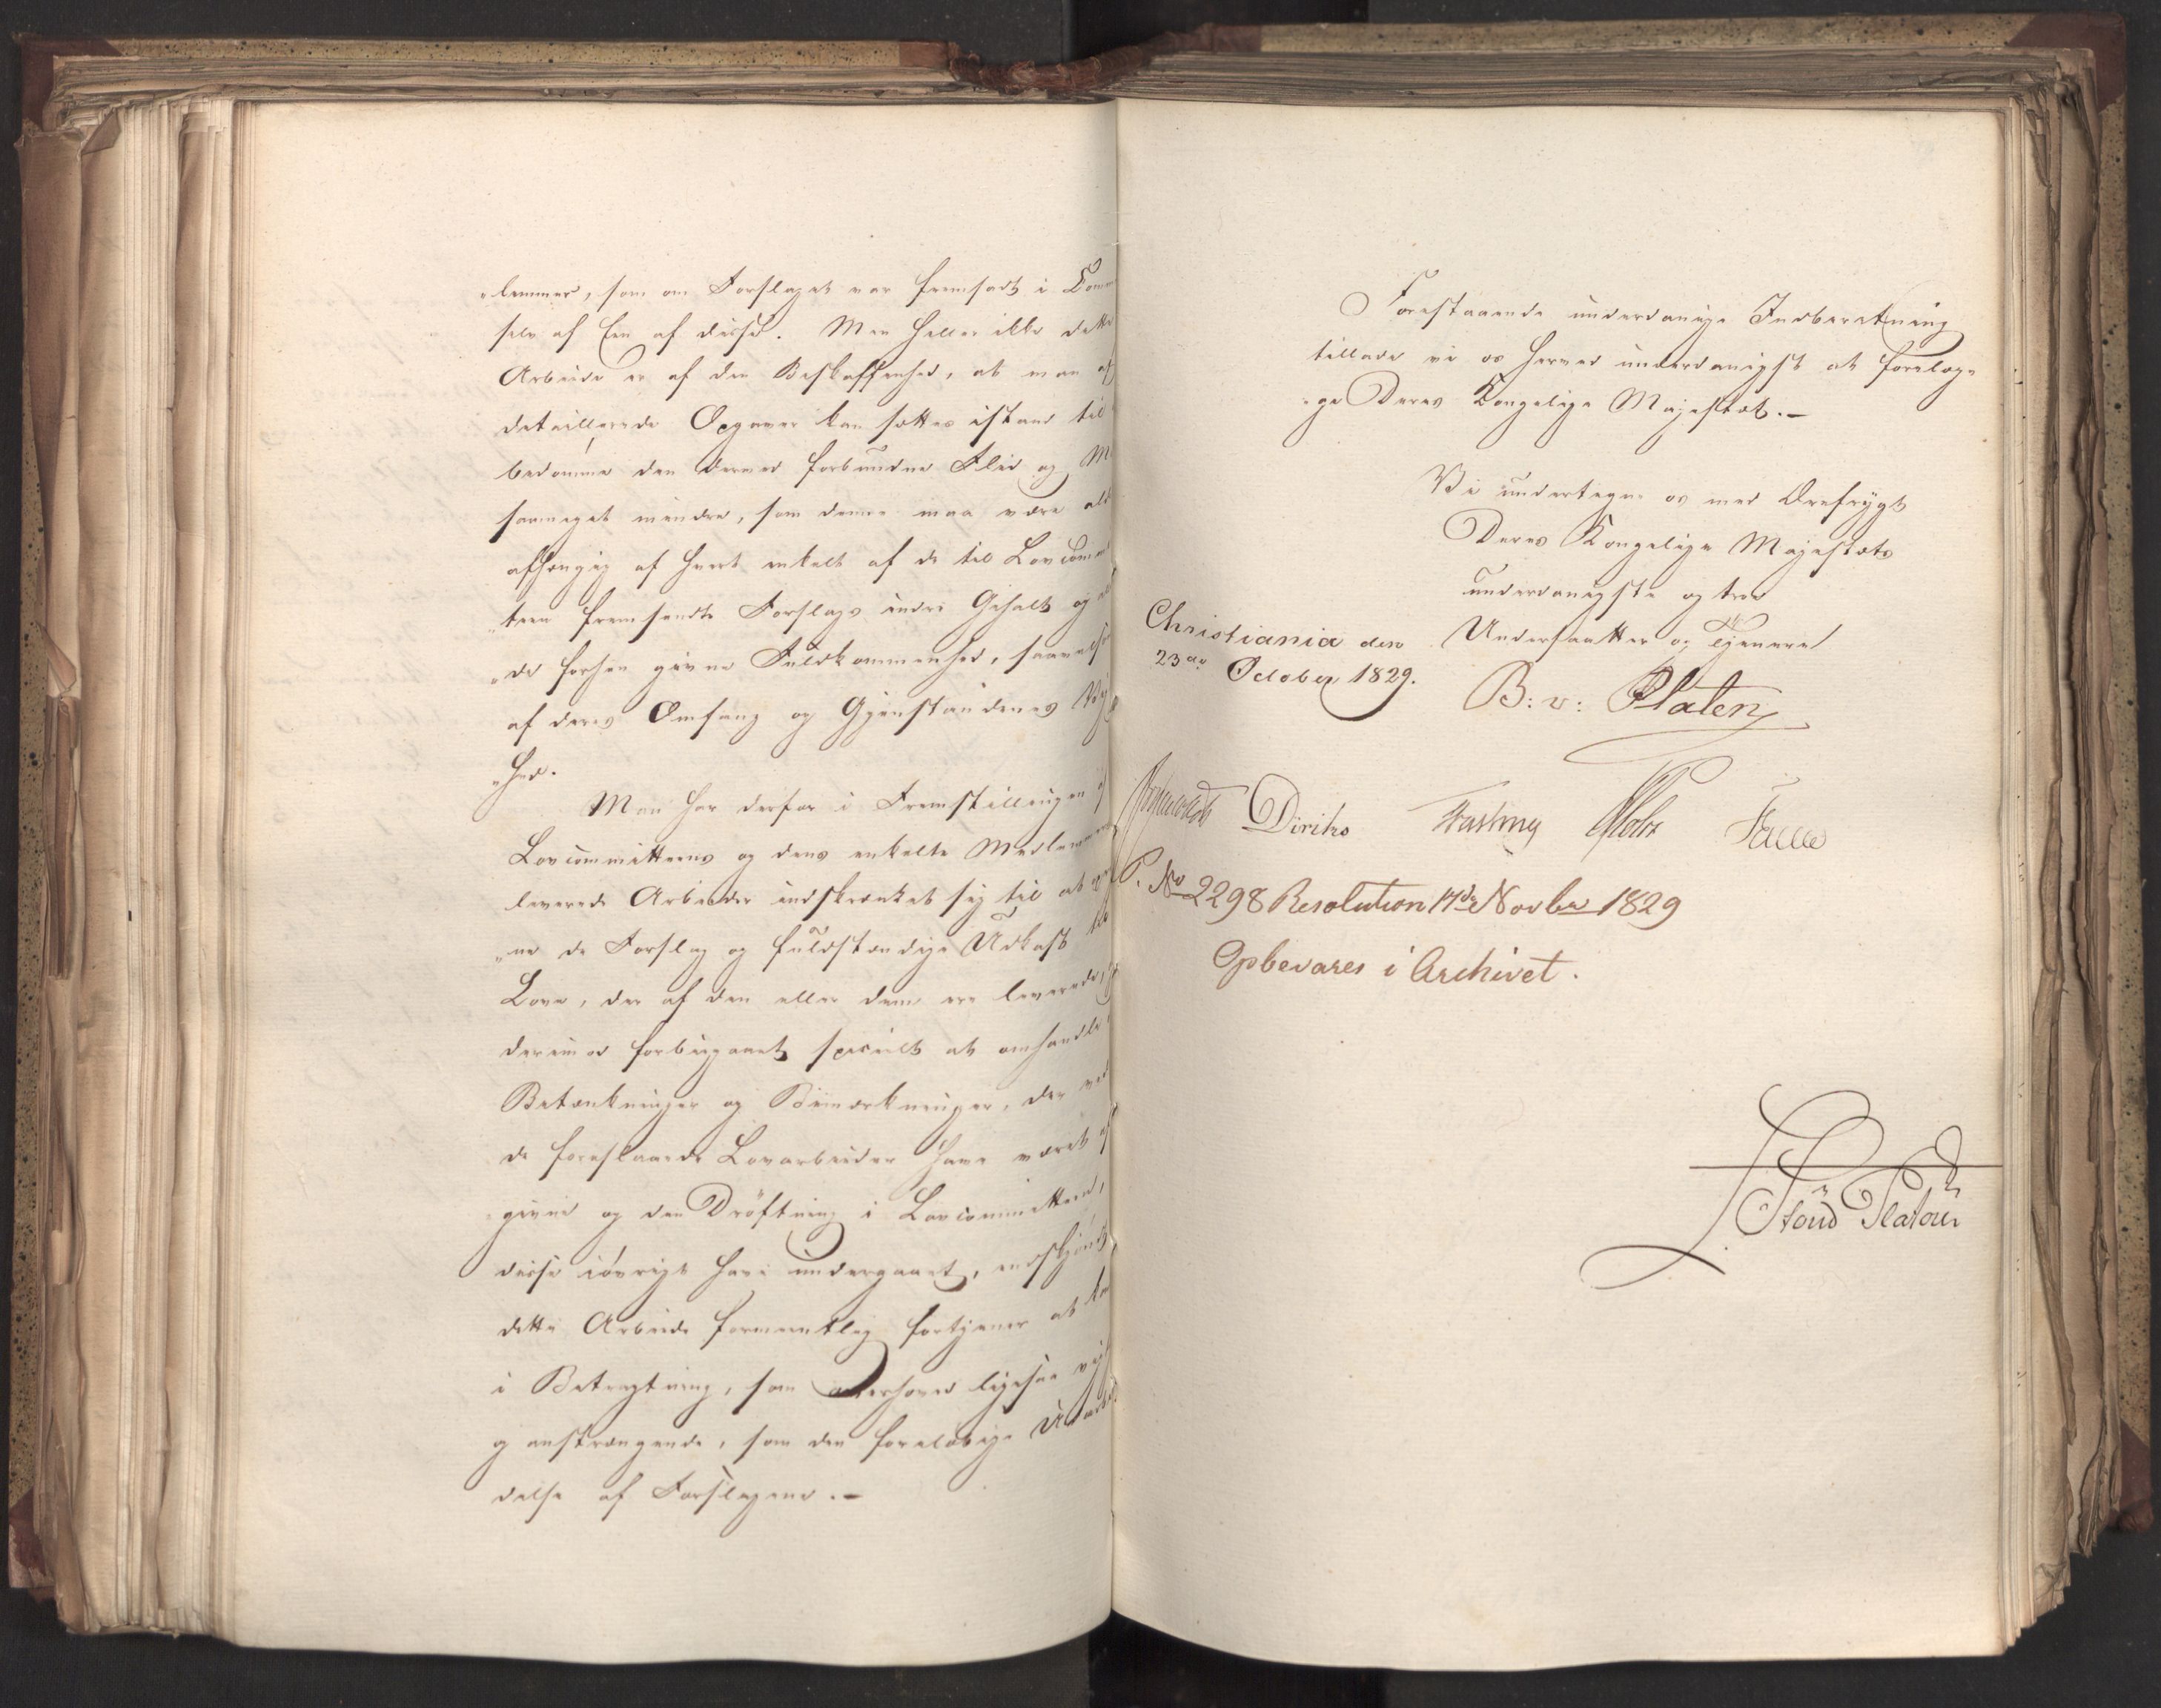 „lemmer, som om Forslaget var fremsadt i Com
selv af Een af disse. Men heller ikke dette
Arbeide er af den Beskaffenhed, at man af
detaillerede Opgaver kan sættes istand til
bedømme den dermed forbundne Flid og
saameget mindre, som denne maa være
afhængig af hvert enkelt af de til Lovcommit
„teen fremsendte Forslags indre Gehalt og
„de forhen givne Fuldkommenhed, saavelsom
af deres Omfang og Gjenstandenes
„hed.
Man har derfor i Fremstillingen af
Lovcommitteens og dens enkelte Medlemmers
leverede Arbeider indskrænket sig til at
„ne de Forslag og fuldstændige Udkast til
Love, der af den eller dem ere leverede,
derimod forbigaaet specielt at omhandle
Betænkninger og Bemærkninger, der ved
de foreslaaede Lovarbeider have været af
givne og den Drøftning i Lovcommitteen,
disse iøvrigt have undergaaet, endskjøndt
dette Arbeide formeentlig fortjener at
i Betragtning, som overhoved ligesaa
g anstrængende, som den foreløbige Udarbei
delse af Forslagene.-
Forestaaende underdanige Indberetning
tillade vi os herved underdanigst at forelæg-
ge Deres Kongelige Majestæt.-
Vi undertegne os med Ærefrygt
Deres Kongelige Majestæts
underdanigste og troe
Undersaatter og Tjenere
Christiania den
23de October 1829.
B: v: Platen
Diriks Fasting Holst
P. No 2298 Resolution 17de Novbr 1829
Opbevares i Archivet.